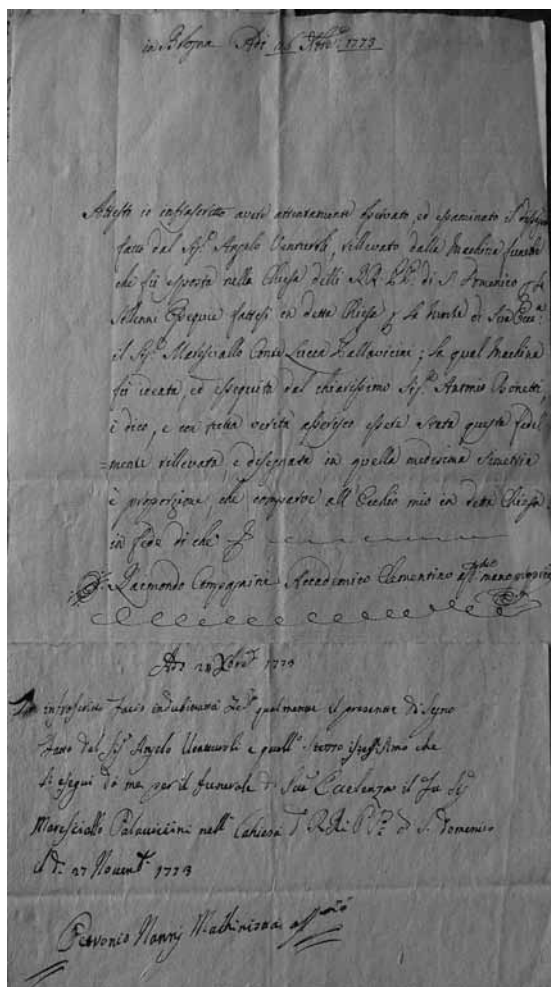 in Bologna Adi 06 Xbre 1773
Attesto io infrascritto avere attentamente osservato, ed essaminato il disegno
fatto dal Sig.r Angelo Venturoli, rillevato dalla Machina funebre
che fù esposta nella Chiesa delli RR. PP. di S. Domenico p. le
Solenni Essequie fattesi in detta Chiesa p. la Morte di Sua Ecc.a
il Sig.r Maresciallo Conte Lucca Pallavicini; la qual Machina
fù ideata, ed essequita dal chiarissimo Sig.r Antonio Bonetti,
è dico, e con tutta verità asserisco essere stata questa fedel
=mente rillevata, e disegnata in quella medesima Simetria
è proporzione, che comparve all'Occhio mio in detta Chiesa,
in fede di che
Raimondo Compagnini Accademico Clementino mano propria
Adi 28 Xbre 1773
Io infrascritto faccio indubitata fede qualmente il presente Disegno
fatto dal Sig.r Angelo Venturoli e quello stesso istessissimo che
si eseguì da me per il funerale di Sua Eccelenza il fu Sig.r
Maresciallo Palavicini nella Chiesa d RRdi PP. di S. Domenico
il dì 27 Novembre 1773
Petronio Nanny Machinista